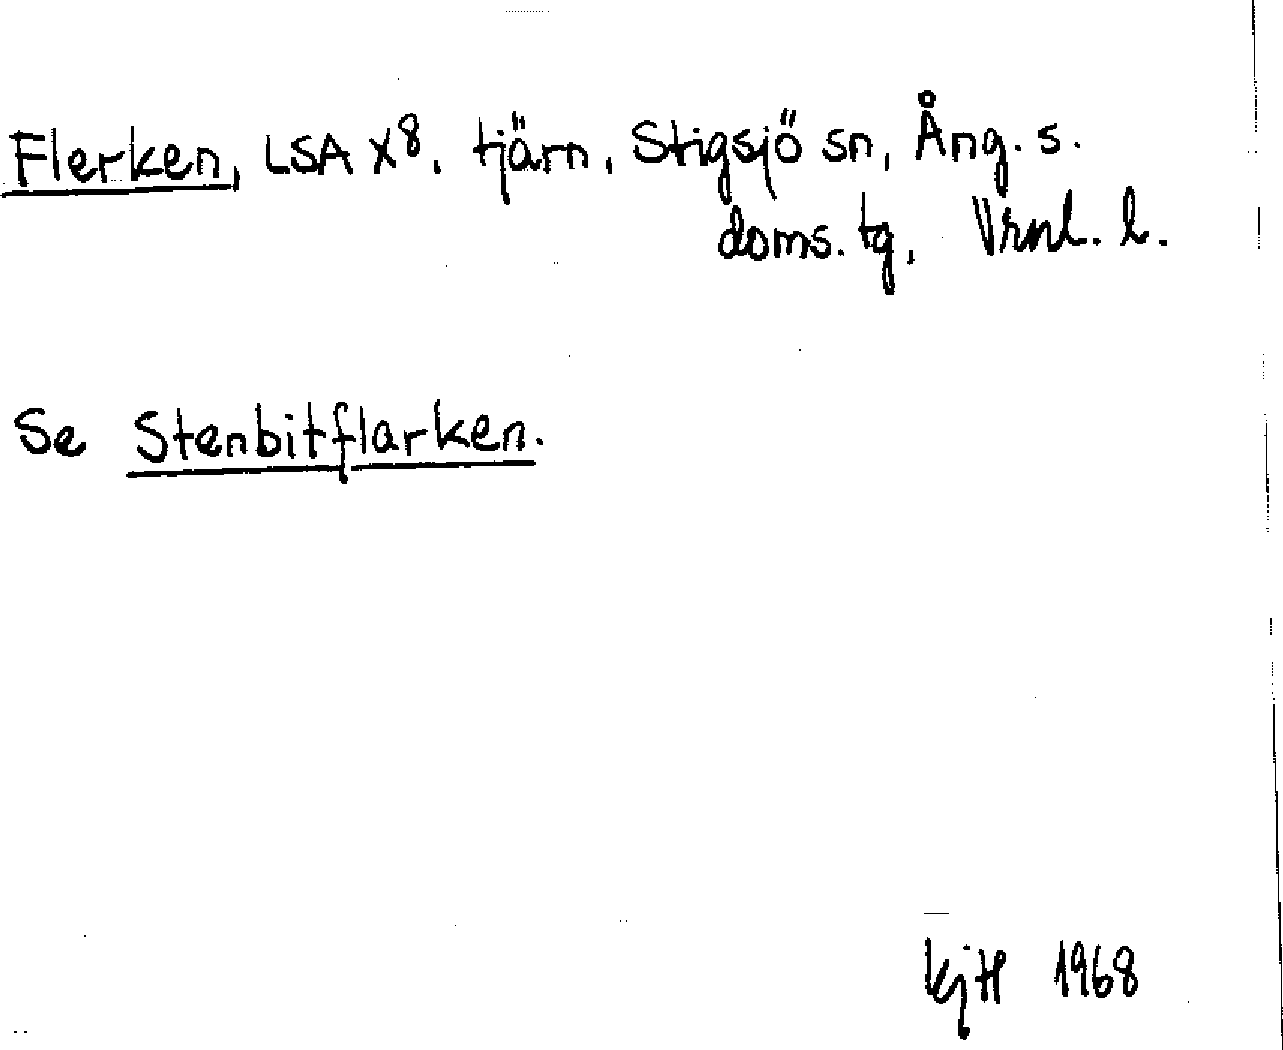 Flerken, LSA X8. tjärn, Stigsjö sn, Ång. s.
doms. tg, Vrnl. l.
Se Stenbitflarken.
KjH 1968